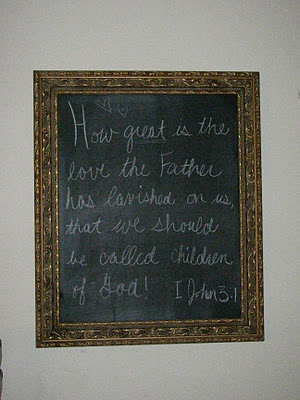 How great is the
love the Father
has lavished on us,
that we should
be called children
of God! I John 3:1